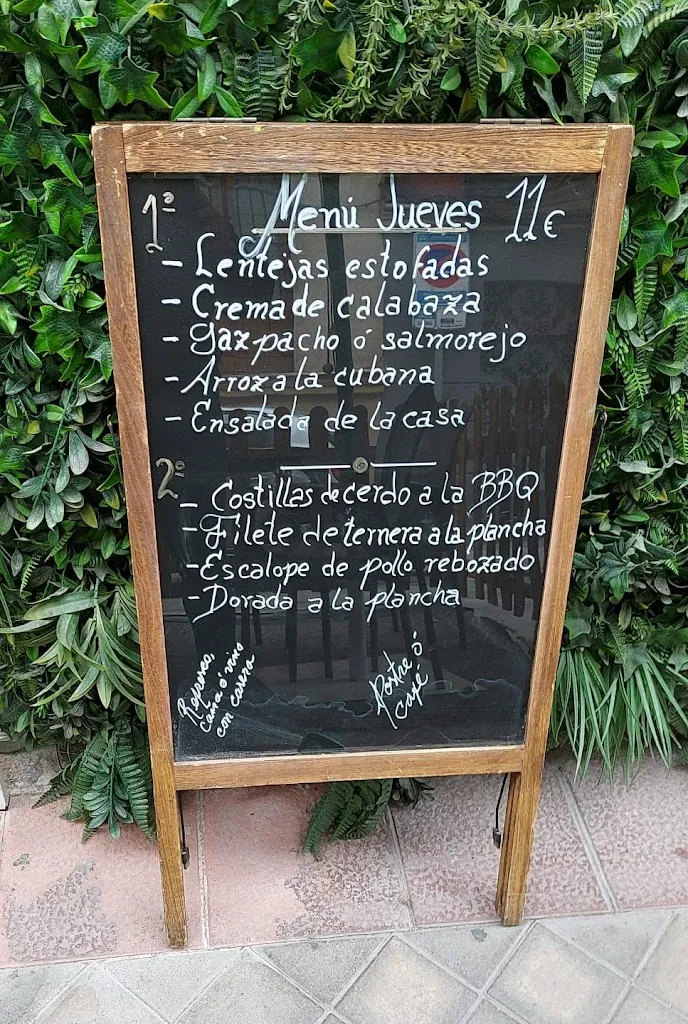 1º Menú Jueves 11€
- Lentejas estofadas
- Crema de calabaza
- Gazpacho ó salmorejo
- Arroz a la cubana
- Ensalada de la casa
2º
- Costillas de cerdo a la BBQ
- Filete de ternera a la plancha
- Escalope de pollo rebozado
- Dorada a la plancha
Refresco,
caña ó vino
con casera
Postre ó
café